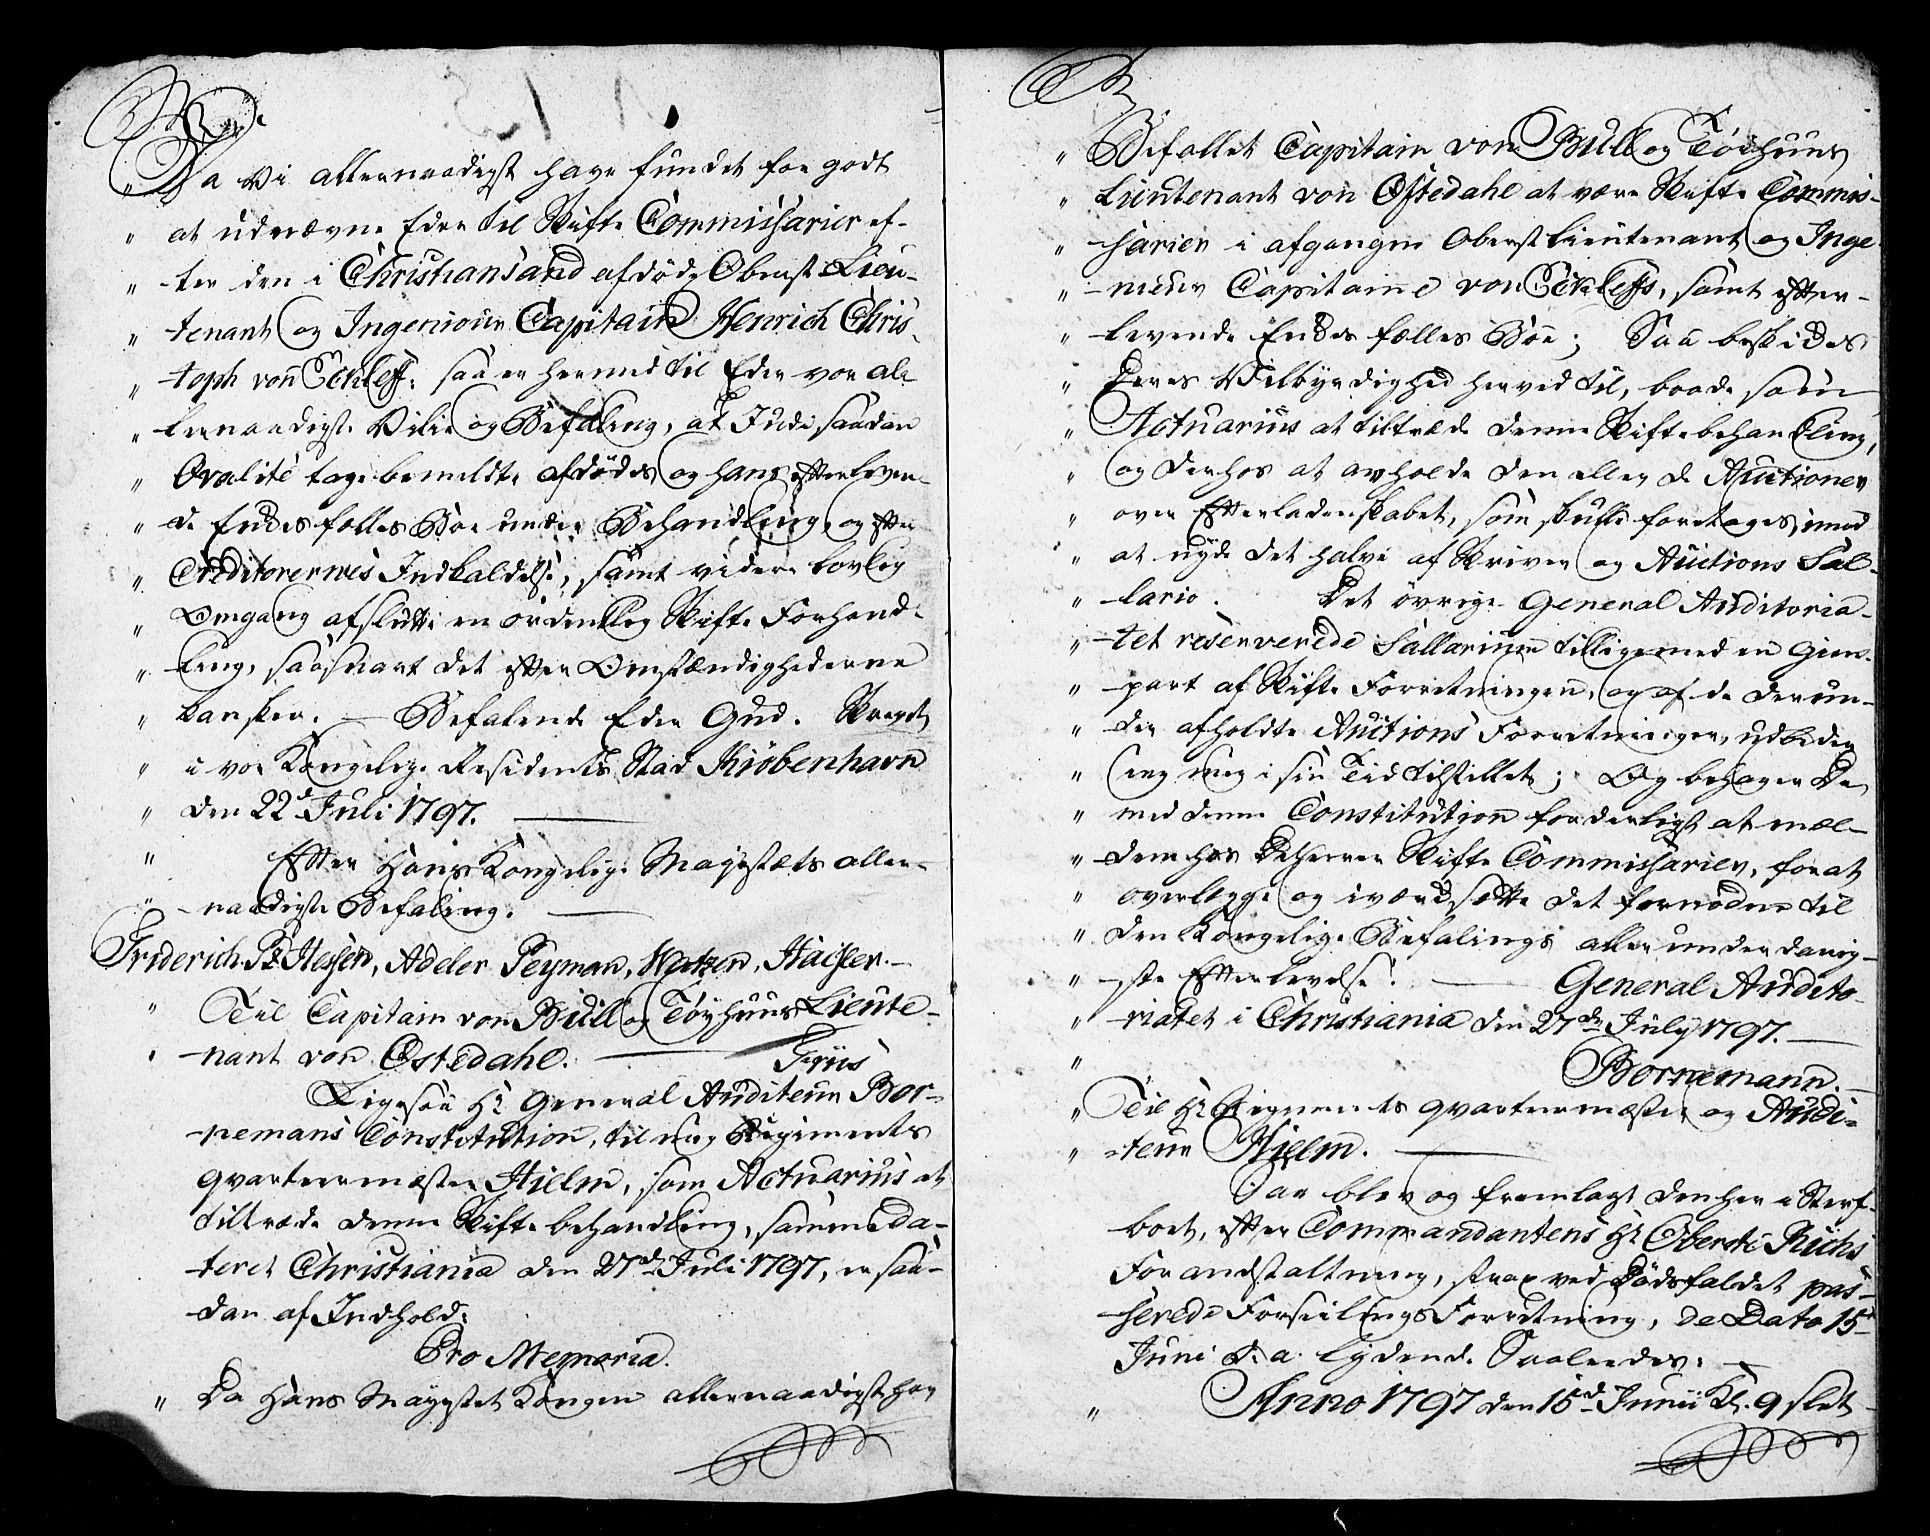 Da Vi allernaadigst have fundet for godt
at udnævne Eder til Skifte Commissarier ef-
ter den i Christiansand afdøde Oberst Lieu-
tenant og Ingenieur Capitain Henrich Chris-
toph von Eckleff: saa er hermed til Eder vor al-
lernaadigste Villie og Befaling, at I udi saadan
Qvalité tage bemeldte afdødes og hans efterleven-
de Enkes fælles Boe under Behandling, og efter
Creditorernes Indkaldelse, samt videre lovlig
Omgang afslutte en ordentlig Skifte Forhand-
ling, saasnart det efter Omstændighederne
kan skee. — Befalende Eder Gud. Skrevet
i vor Kongelige Residents Stad Kiøbenhavn
den 22d Juli 1797. —
Efter Hans Kongelige Mayestæts aller-
naadigste Befaling. —
Friderich Pz Hessen, Adeler Peyman, Wetzen, Haisler. —
Til Capitain von Büll og Tøyhuus Lieute-
nant von Ostedahl. — Friis
Ligesaa Hr General Auditeur Bor-
nemans Constitution, til mig Regiments
qvarteermæster Hielm, som Actuarius at
tiltræde denne Skifte behandling, samme da-
teret Christiania den 27d Juli 1797, er saa-
dan af Indhold:
Pro Memoria.
Da Hans Mayestet Kongen allernaadigst har
Befallet Capitain von Büll og Töihuus
Lieutenant von Ostedahl at være Skifte Commis-
sarier i afgangne Oberst Lieutenant og Inge-
nieur Capitaine von Eckleffs, samt efter-
levende Enkes fælles Boe; Saa beskikkes
Deres Velbyrdighed herved til, baade som
Actuarius at tiltræde denne Skifte behandling,
og derhos at avholde den eller de Auctioner
over Efterladenskabet, som skulle foretages, imod
at nyde det halve af Skriver og Auctions Sal-
lario. Det øvrige General Auditoria-
tet reserverede Sallarium tilligemed en Gien-
part af Skifte Forretningen, og af de derun-
der afholdte Auctions Forretninger, udbeder
ieg mig i sin Tid tilstillet; Og behager De
med denne Constitution forderligst at mæl-
dem hos De Herrer Skifte Commissarier, for at
overlegge og iværdsette det fornødne til
den Kongelige Befalings allerunderdanig-
ste Efterlevelse. — General Audito-
riatet i Christiania den 27de July 1797. —
Bornemann. —
Til Hr Regiments qvarteermæster og Audi-
teur Hielm. —
Saa blev og fremlagt den her i Sterf-
boet, efter Commandantens Hr Oberste Richs
Foranstaltning, strax ved Dødsfaldet pas-
serede Forseilings Forretning, de Dato 15
Juni d. a. lydende Saaledes: —
Anno 1797 den 15d Junii Kl. 9 slet